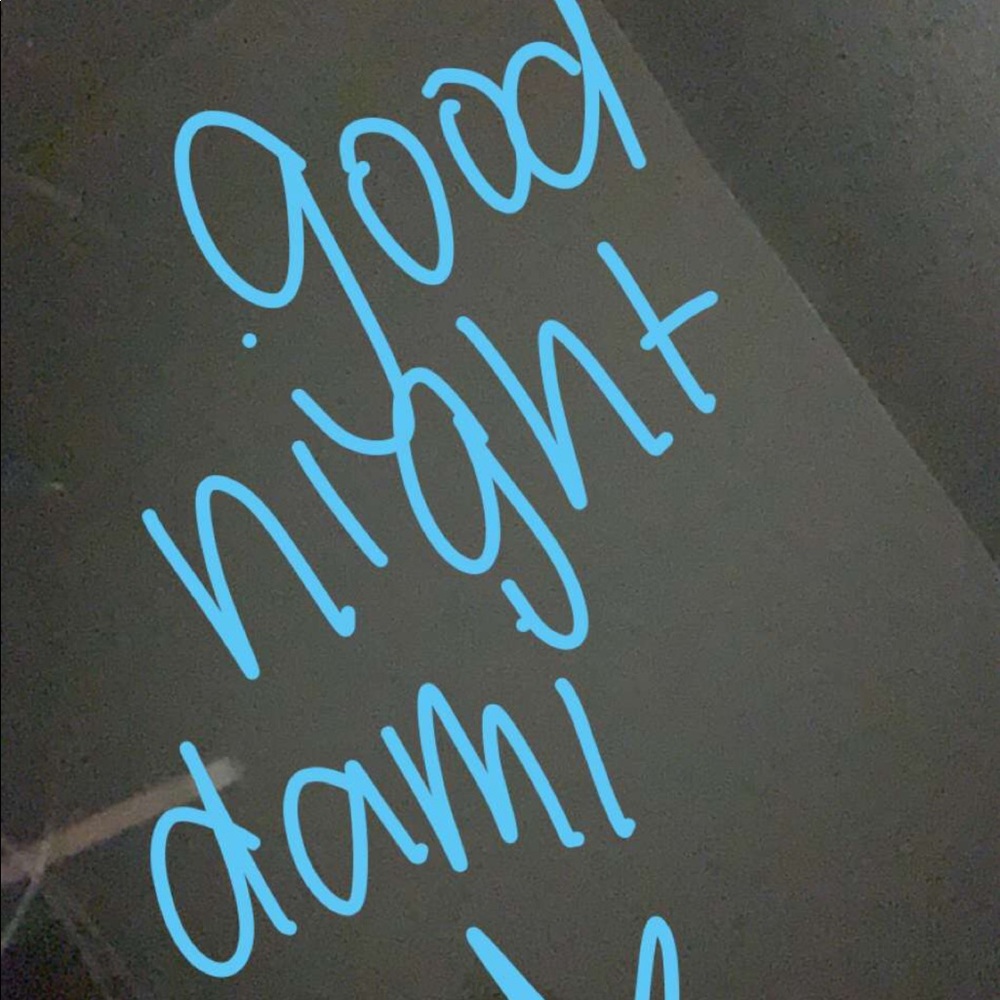 good
night
dami